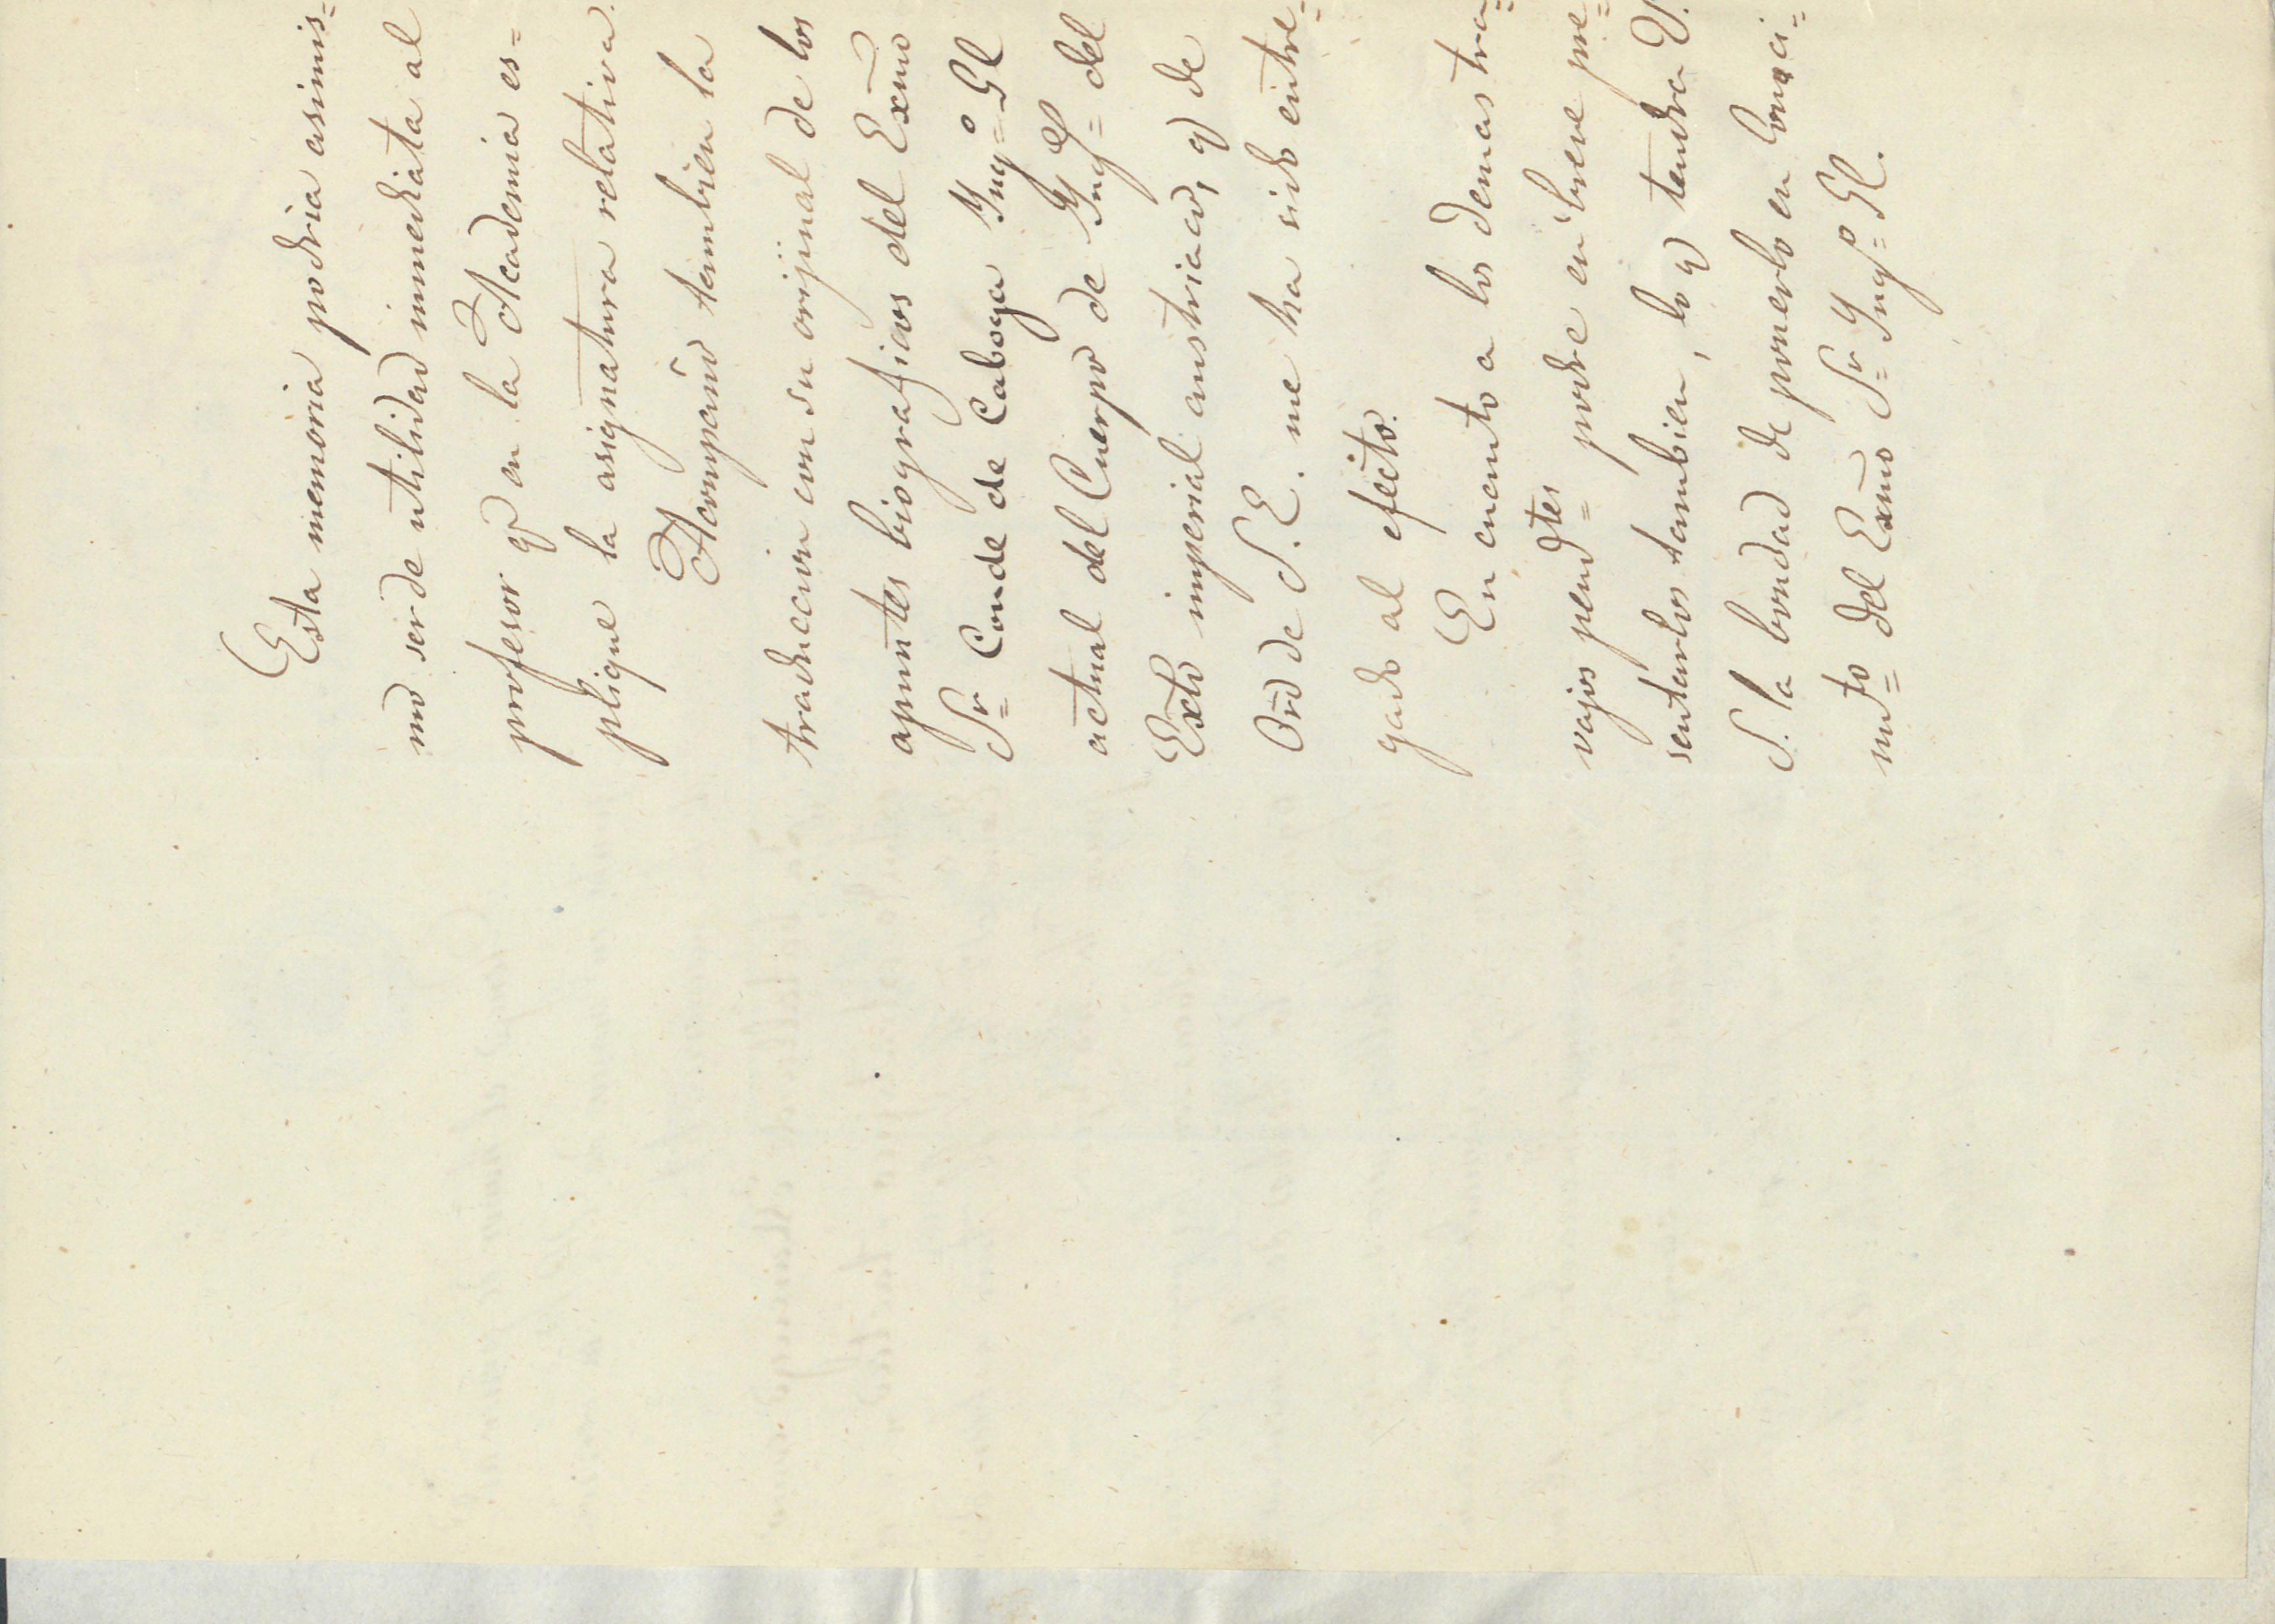 Esta memoria podria asimis=
mo ser de utilidad inmediata al
profesor qe en la Academia es=
plique la asignatura relativa.
Acompaño tambien la
traduccion con su orijinal de los
apuntes biograficos del Exmo
Sr= Conde de Caboga Yngo= Gl
actual del Cuerpo de Yngs= del
Exto imperial austriaco, q de
Orn de S. E. me ha sido entre=
gado al efecto.
En cuanto a los demas tra=
vajos pendtes= podre en breve pre=
sentarlos tambien, lo q tendra V.
S. la bondad de ponerlo en conoci=
mto= del Exmo Sr= Yngo= Gl.